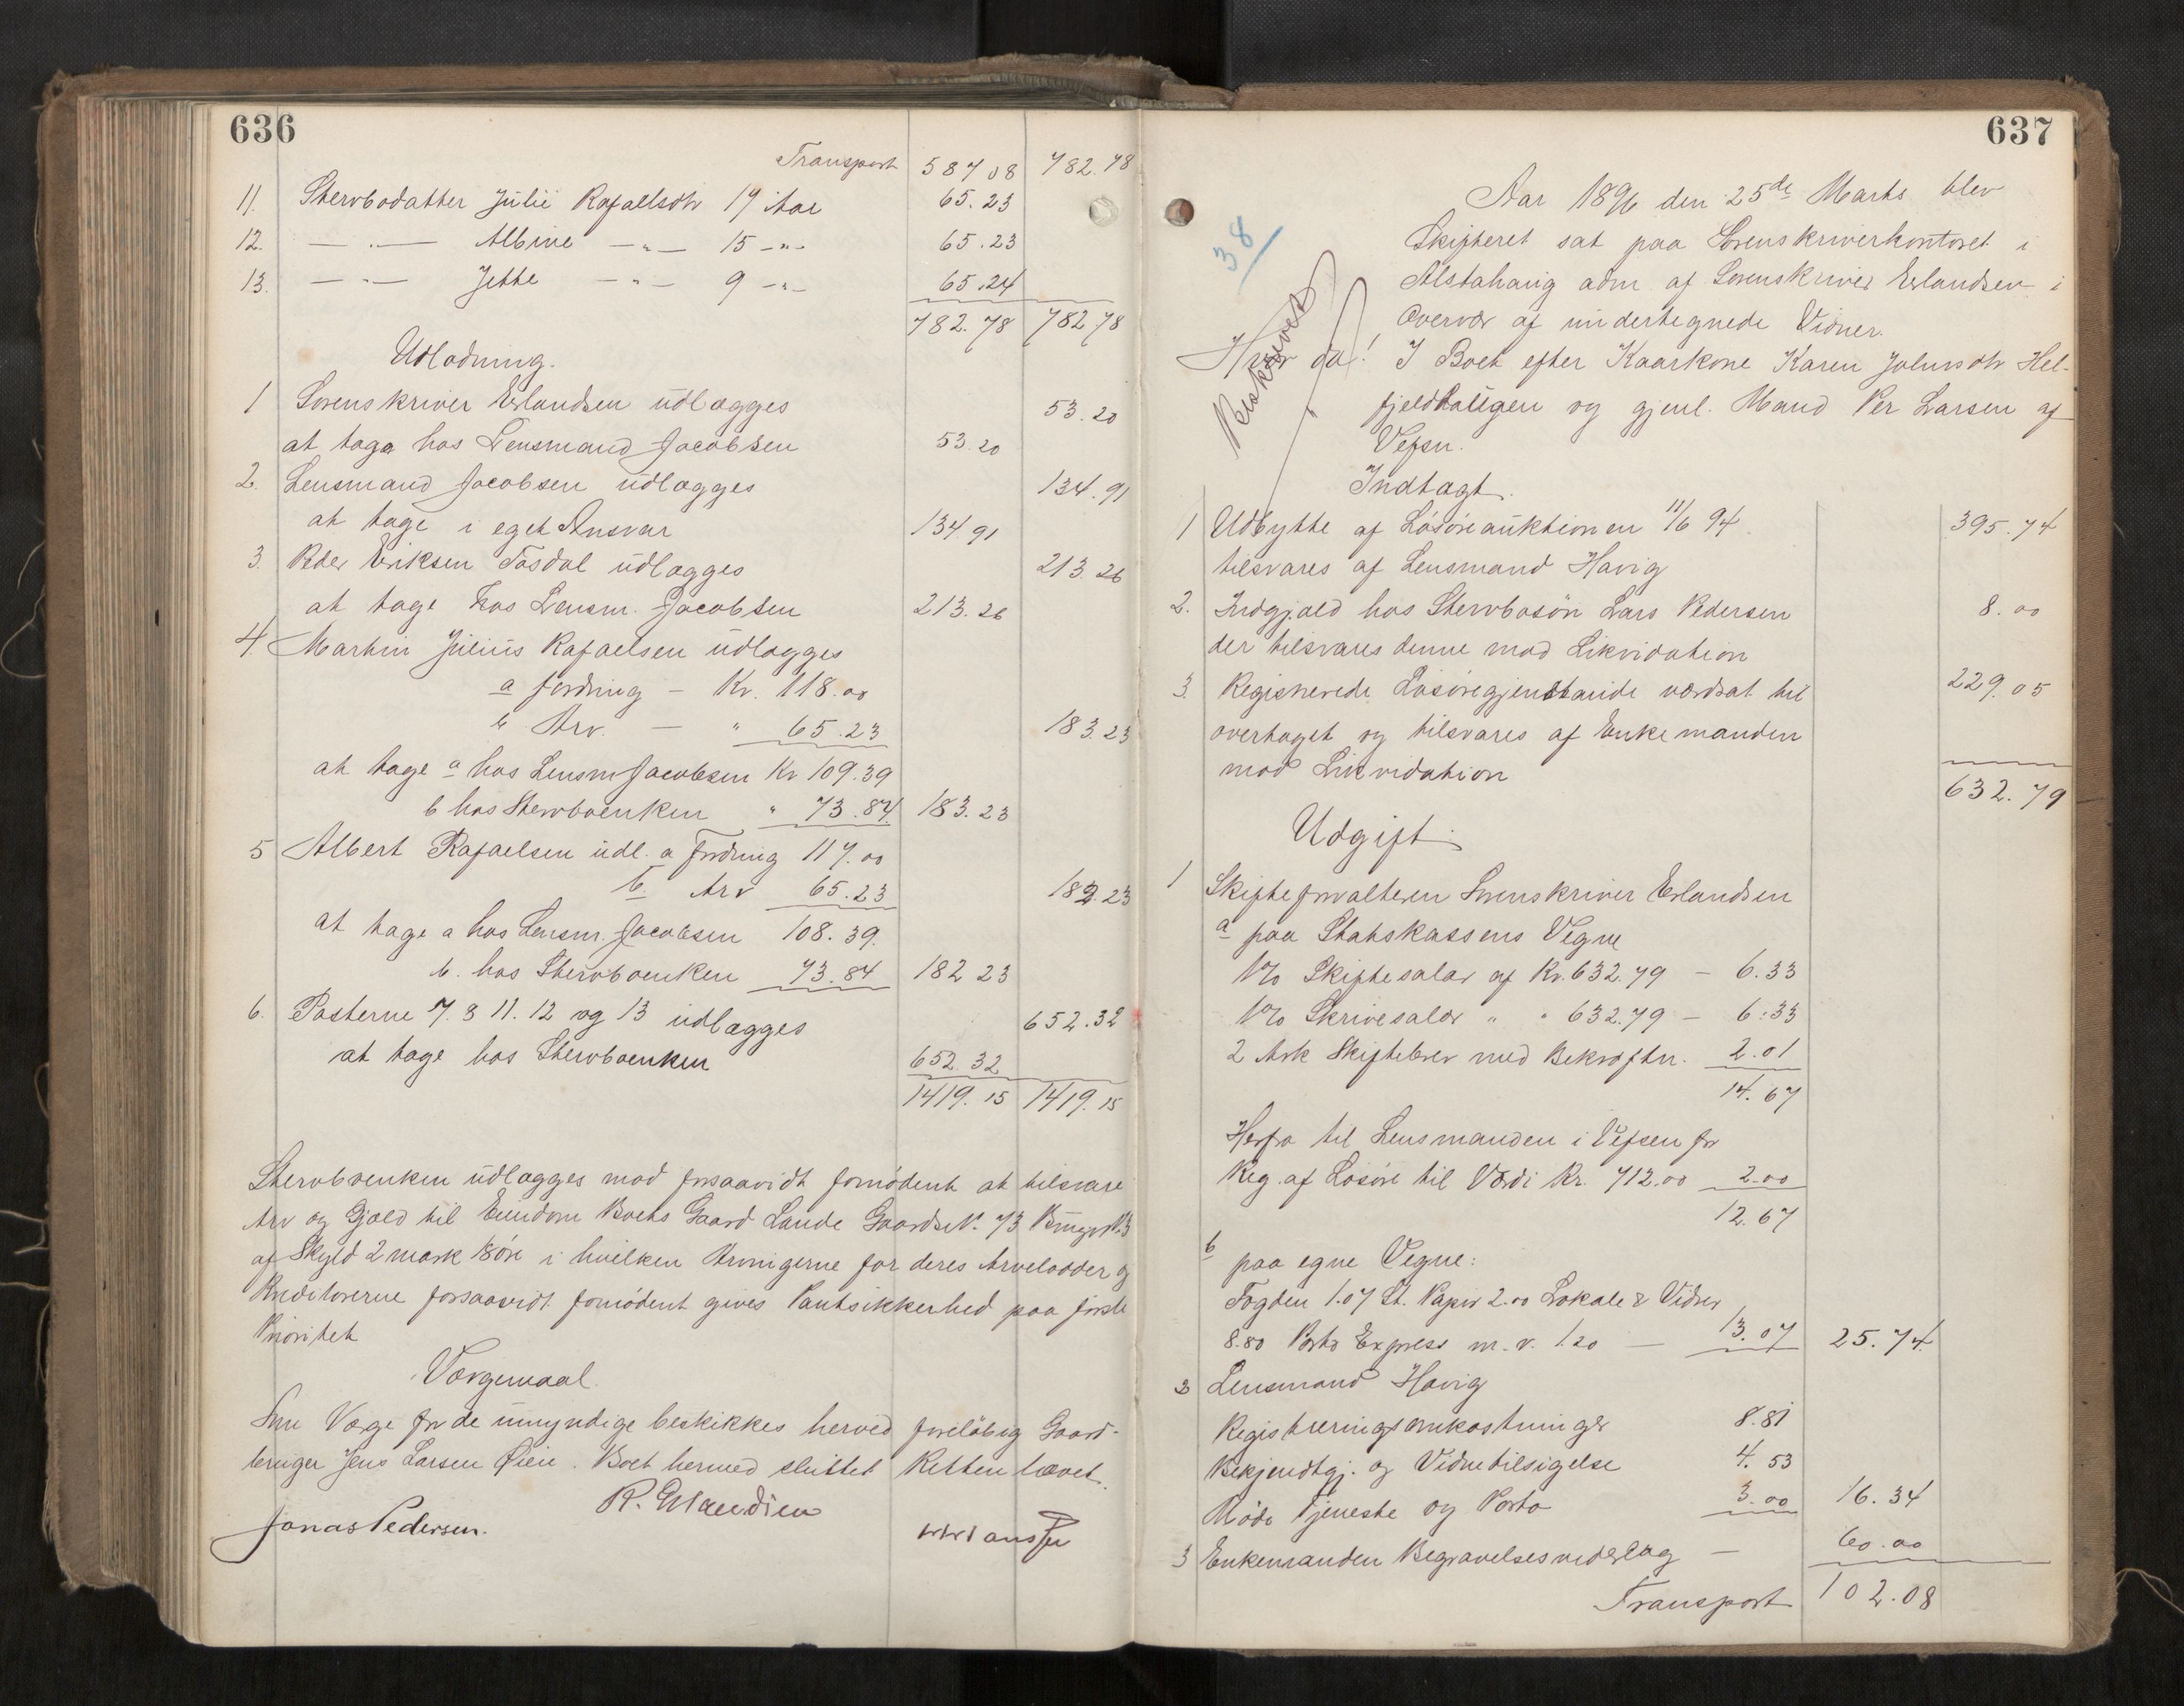 636
Transport 587 08 782.78
11. Stervbodatter Julie Rafaelsdtr 19 Aar 65.23
12. — " — Albine — " — 15 — " — 65.23
13. — " — Jette — " — 9 — " — 65.24
782.78 782 78
Udlodning.
1 Sorenskriver Erlandsen udlægges 53.20
at tage hos Lensmand Jacobsen 53.20
2. Lensmand Jacobsen udlægges 134.91
at tage i eget Ansvar 134.91
3. Peder Eriksen Tosdal udlægges 213.26
at tage hos Lensm. Jacobsen 213.26
4. Martin Julius Rafaelsen udlægges
a fordring — Kr. 118.00
b Arv. — " 65.23 183.23
at tage a hos Lensm Jacobsen Kr 109.39
b hos Stervboenken " 73.84 183.23
5 Albert Rafaelsen udl. a fordring 117.00
b. Arv 65.23 182.23
at tage a hos Lensm. Jacobsen 108.39.
b. hos Stervboenken 73.84 182 23
6. Posterne 7. 8 11. 12 og 13 udlægges 652.32
at tage hos Stervboenken 652.32
1419.15 1419.15
Stervboenken udlægges mod forsaavidt fornødent at tilsvare
Arv og Gjæld til Eiendom Boets Gaard Lande Gaards No. 73 Brugs No 3
af Skyld 2 mark 18 öre i hvilken Arvingerne for deres Arvelodder og
Kreditorerne forsaavidt fornødent gives Pantsikkerhed paa første
Prioritet
Værgemaal.
Som Værge for de umyndige beskikkes herved foreløbig Gaard-
bruger Jens Larsen Øien. Boet hermed sluttet Retten hævet.
R. Erlandsen
Jonas Pedersen.
637
38
Beskrevet
Aar 1896 den 25de Marts blev
Skifteret sat paa Sorenskriverkontoret i
Alstahaug adm. af Sorenskriver Erlandsen i
Overvær af undertegnede Vidner.
Hvor da! I Boet efter Kaarkone Karen Johnsdtr Hel-
fjeldbaligen og gjenl. Mand Per Larsen af
Vefsn.
Indtægt.
1 Udbytte af Løsøreauktionen 11/6 94. 395.74
tilsvares af Lensmand Havig
2. Indgjæld hos Stervbosøn Lars Pedersen 8.00
der tilsvares denne mod Likvidation
3. Registrerede Løsøregjenstande værdsat til 229.05
overtaget og tilsvares af Enkemanden
mod Likvidation
632.79
Udgift.
1 Skifteforvalteren Sorenskriver Erlandsen
a paa Statskassens Vegne
1% Skiftesalær af Kr. 632.79 — 6.33
1% Skrivesalær " " 632.79 — 6.33
2 Ark Skiftebrev med Bekræftn. 2.01
14.67
Herfra til Lensmanden i Vefsen for
Reg. af Løsøre til Værdi Kr. 712.00 2.00
12.67
b paa egne Vegne:
Fogden 1.07 St. Papir 2.00 Lokale & Vidner
8.80 Porto Express m. v. 1.20 — 13.07 25.74
2 Lensmand Havig
Registreringsomkostninger 8.81
Bekjendtgj. og Vidnetilsigelse 4.53
Møde Tjeneste og Porto 3.00 16.34
3 Enkemanden Begravelsesvederlag — 60.00
Transport 102.08